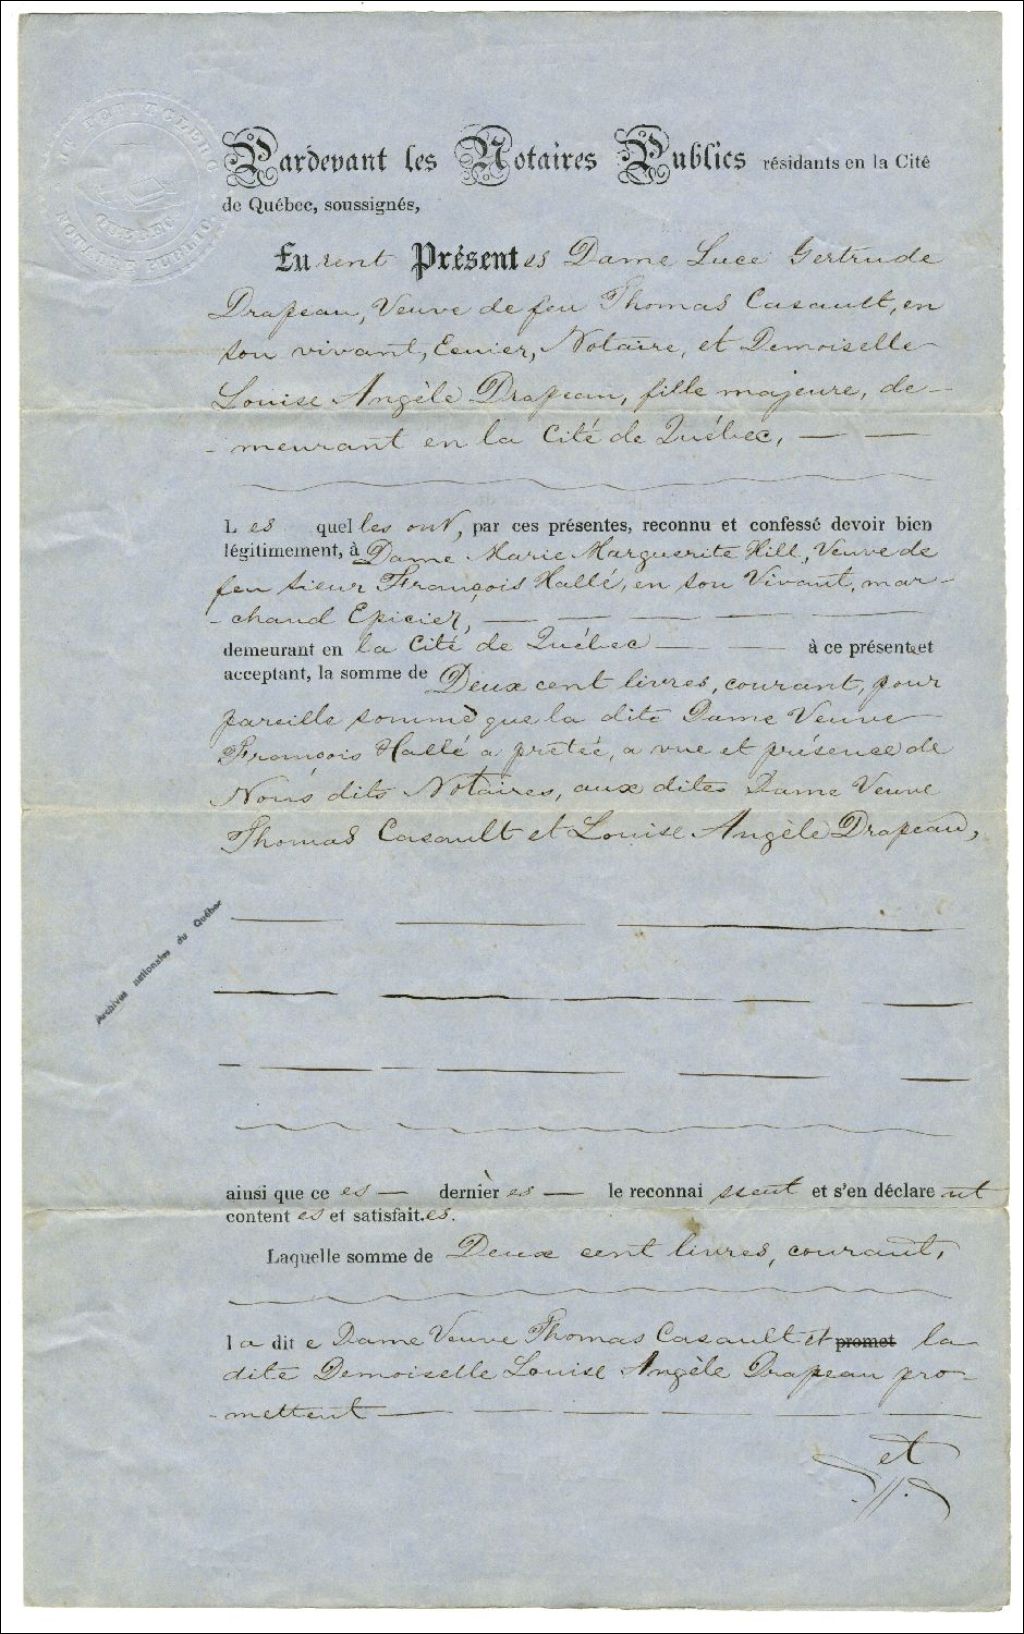 NOTAIRE PUBLIC
QUEBEC
Pardevant les Notaires Publics résidants en la Cité
de Québec, soussignés,
Furent Présentes Dame Luce Gertrude
Drapeau, Veuve de feu Thomas Casault, en
son vivant, Ecuier, Notaire, et Demoiselle
Louise Angèle Drapeau, fille majeure, de-
- meurant en la Cité de Québec, — —
Les quelles ont, par ces présentes, reconnu et confessé devoir bien
légitimement, à Dame Marie Marguerite Hill, Veuve de
feu Sieur François Hallé, en son Vivant, mar-
- chand Epicier, — — — — —
demeurant en la Cité de Québec — — à ce présente et
acceptant, la somme de Deux cent livres, courant, pour
pareille somme que la dite Dame Veuve
François Hallé a pretée, a vue et présence de
Nous dits Notaires, aux dites Dame Veuve
Thomas Casault et Louise Angèle Drapeau,
Archives nationales du Québec
ainsi que ce es — dernièr es — le reconnai ssent et s'en déclare nt
content es et satisfait.es.
Laquelle somme de Deux cent livres, courant,
la dit e Dame Veuve Thomas Casault et promet la
dite Demoiselle Louise Angèle Drapeau pro-
- mettent — — — — — —
et